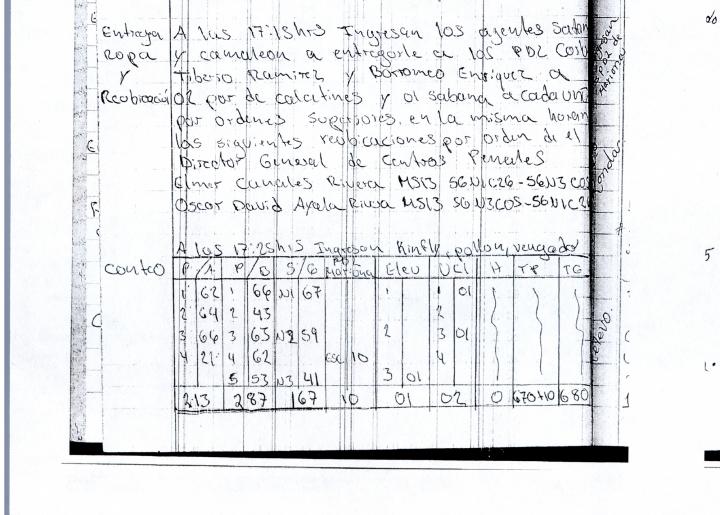 Entrega A las 17:15hrs Ingresan los agentes Satan
Ropa y camaleon a entregarle a los PDL
y Tiberio Ramirez y Borromeo Enriquez a
Reubicación 02 par de calcetines y 01 sabana a cada un
por ordenes superiores, en la misma horan
las siguientes reubicaciones por orden de el
Director General de Centros Penales
Elmer Canales Rivera MS13 S6N1C26-S6N3COS
Oscar David Ayala Rivera MS13 S6N3COS-S6N1C26
A las 17:25hrs Ingresan Kinfly, pollon, vengador
Conteo P/A P/B S/6 PDL Mariona Elev UCI H TP TG
1 62 1 64 N1 67 1 1 01
2 64 2 43 2
3 66 3 65 N2 59 2 3 01
4 21 4 62 Esc 10 4
5 53 N3 41 3 01
213 287 167 10 01 02 0 670+10 680
relevo.